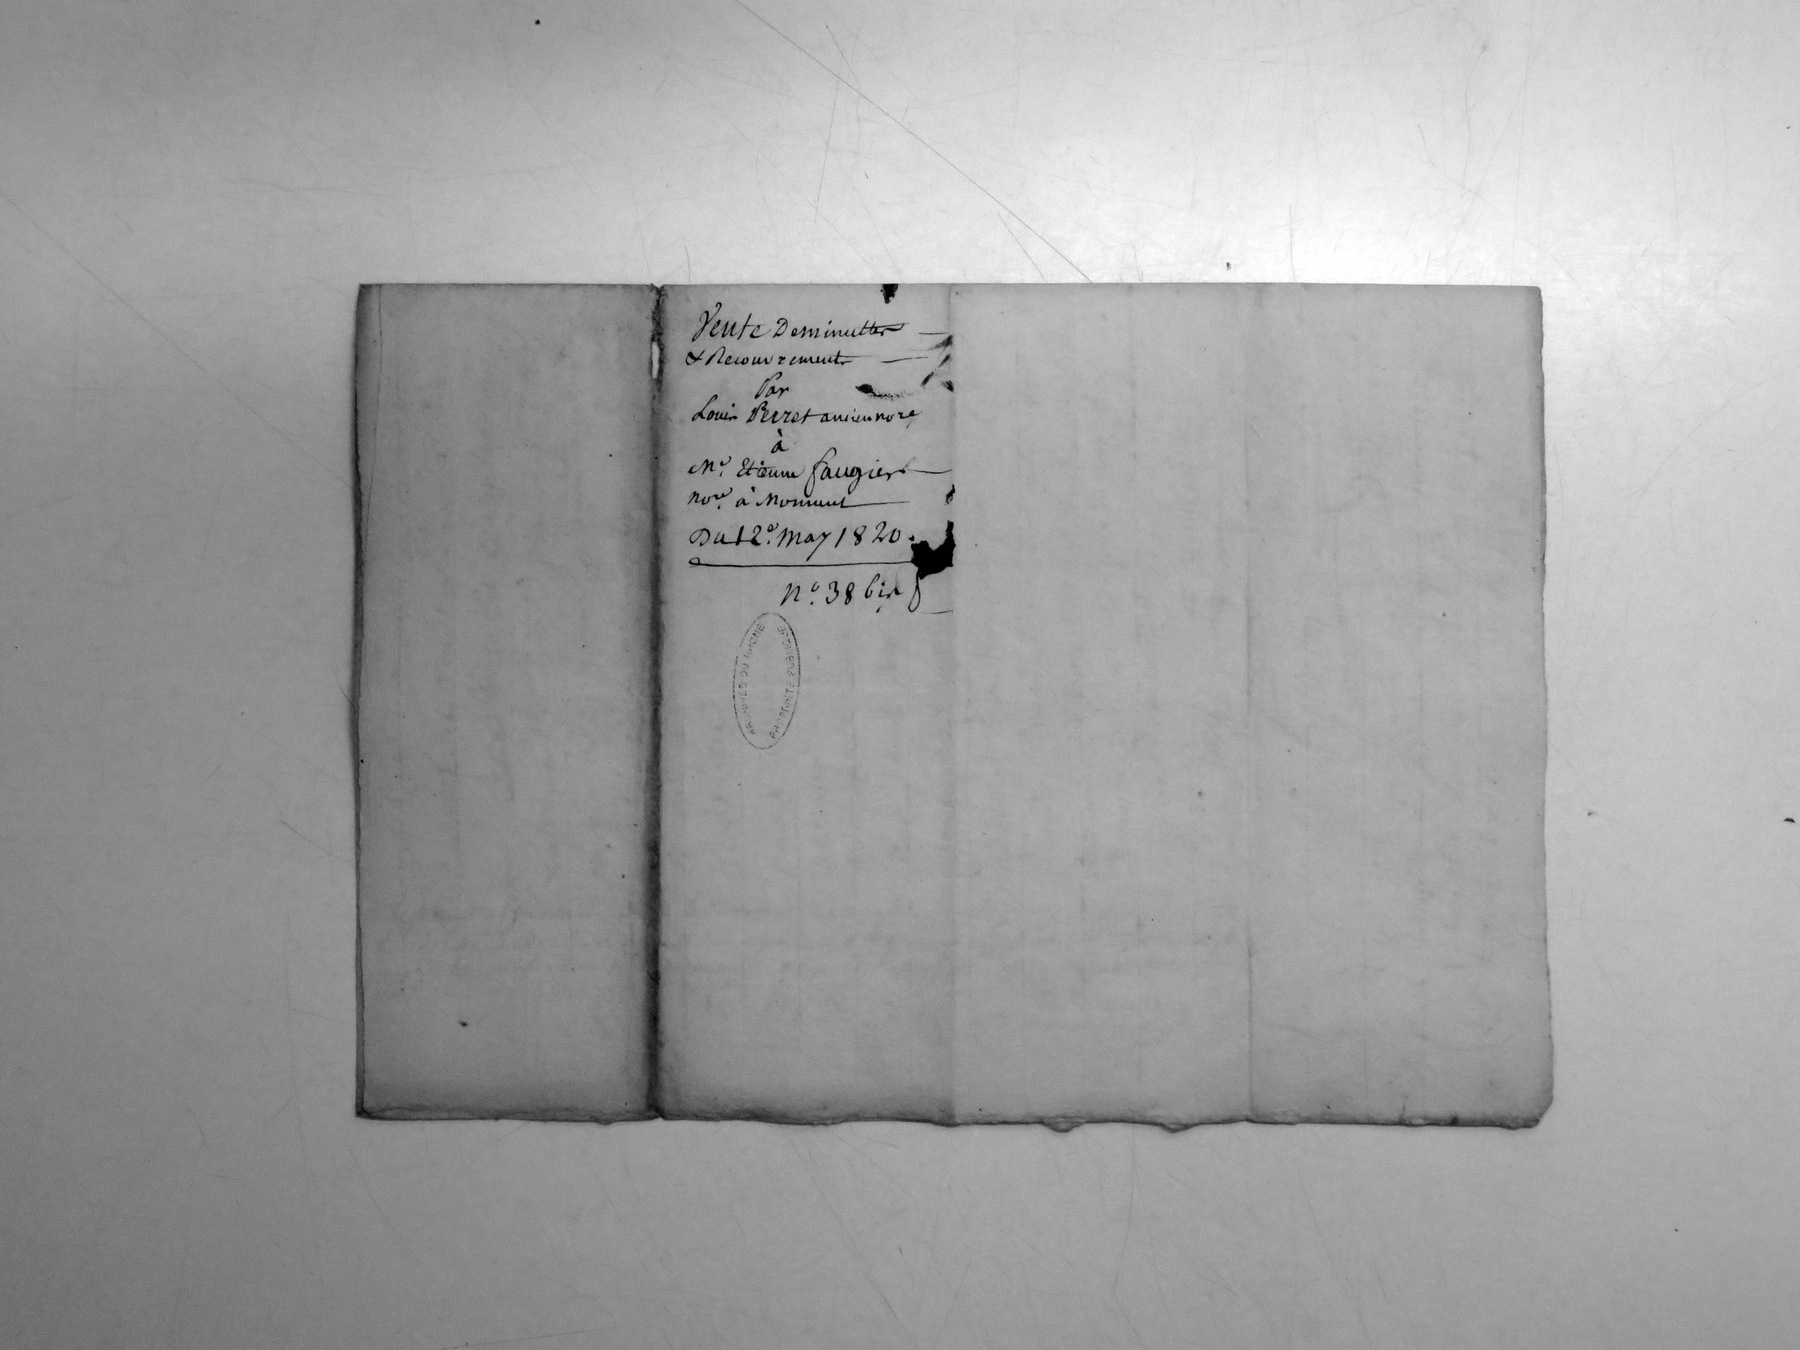 Vente Deminuttes
& Recouvrements
Par
Louis Perret ancien nore
à
Mr. Etienne faugier
nore. à Mornant
Du 12e. May 1820.
N.º 38 bis
ARCHIVES DU RHONE
PROPRIETE PUBLIQUE